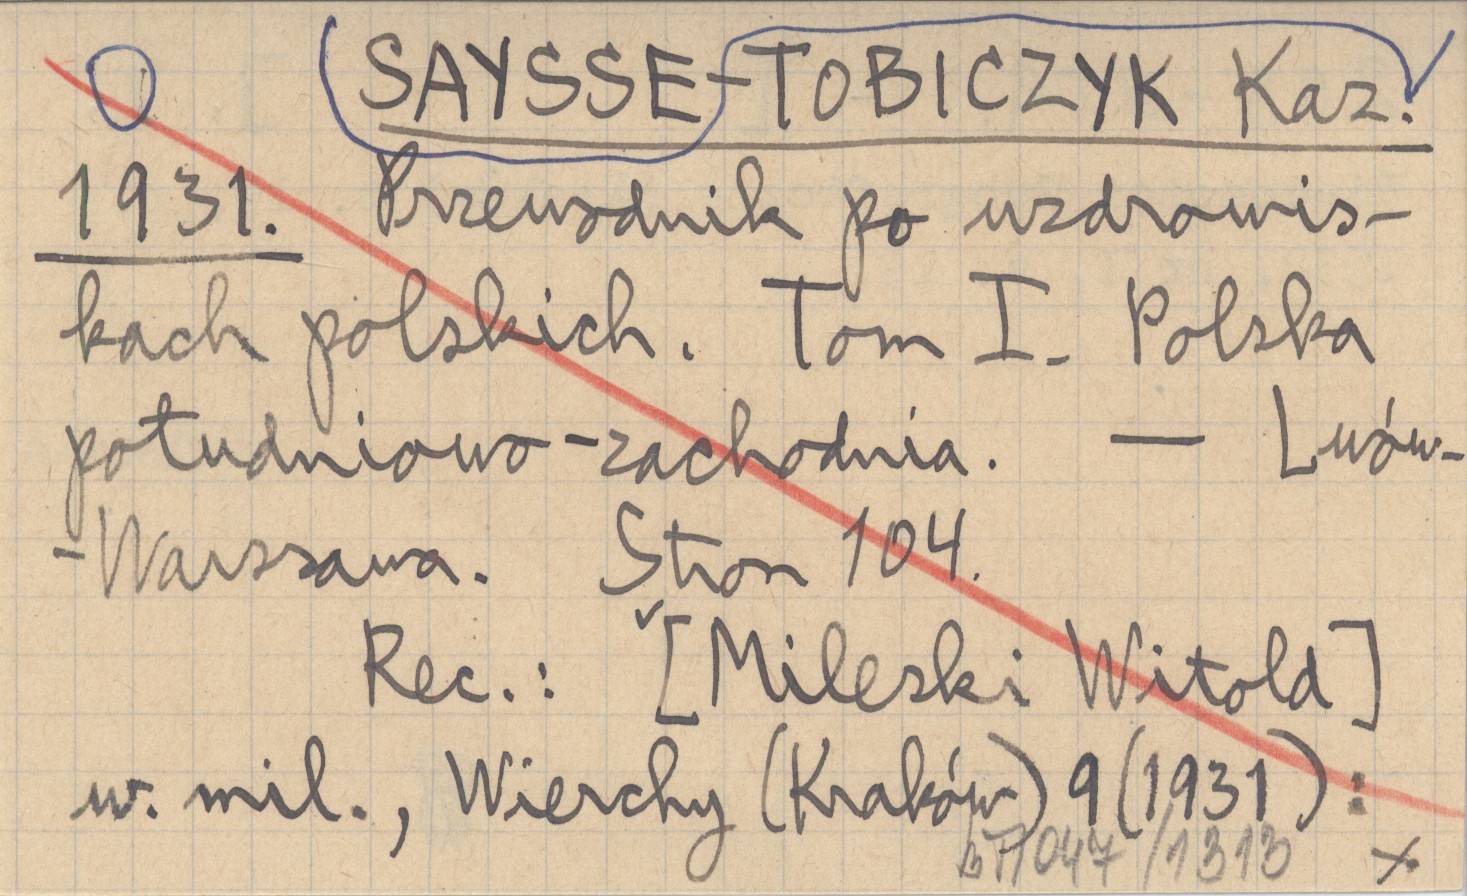 SAYSSE-TOBICZYK Kaz.
1931. Przewodnik po uzdrowis-
kach polskich. Tom I. Polska
południowo-zachodnia. — Lwów-
-Warszawa. Stron 104.
Rec.: [Mileski Witold]
w. mil., Wierchy (Kraków) 9 (1931):
/1313 x